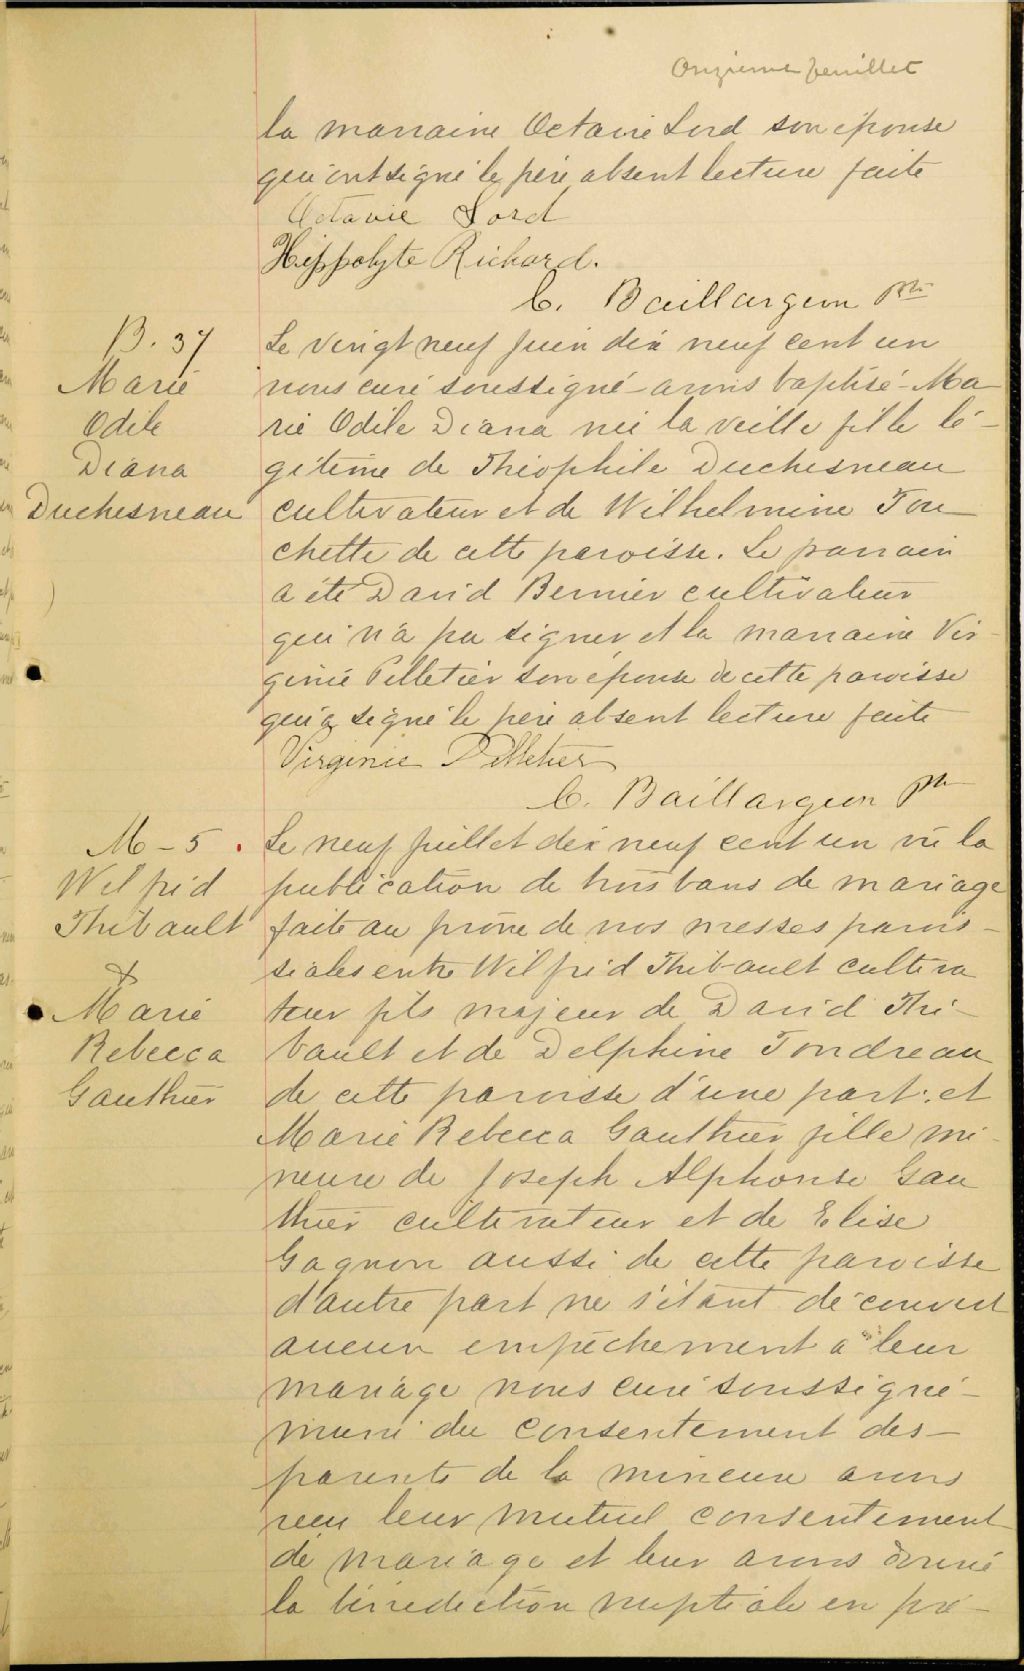 Onzieme feuillet
la marraine Octavie Lord son épouse
qui ont signé le père absent lecture faite
Octavie Lord
Hippolyte Richard.
C. Baillargeon ptre
B. 37
Marie
Odile
Diana
Duchesneau
Le vingt neuf juin dix neuf cent un
nous curé soussigné avons baptisé Ma-
rie Odile Diana née la veille fille lé-
gitime de Théophile Duchesneau
cultivateur et de Wilhelmine Tou-
chette de cette paroisse. Le parrain
a été David Bernier cultivateur
qui n'a pu signer et la marraine Vir-
ginie Pelletier son épouse de cette paroisse
qui a signé le père absent lecture faite
Virginie Pelletier
C. Baillargeon ptre
M - 5
Wilfrid
Thibault
&
Marie
Rebecca
Gauthier
Le neuf juillet dix neuf cent un vu la
publication de trois bans de mariage
faite au prône de nos messes parois-
siales entre Wilfrid Thibault cultiva
teur fils majeur de David Thi-
bault et de Delphine Tondreau
de cette paroisse d'une part; et
Marie Rebecca Gauthier fille mi-
neure de Joseph Alphonse Gau
thier cultivateur et de Elise
Gagnon aussi de cette paroisse
d'autre part ne s'étant découvert
aucun empêchement à leur
mariage nous curé soussigné
muni du consentement des
parents de la mineure avons
reçu leur mutuel consentement
de mariage et leur avons donné
la bénédiction nuptiale en pré-